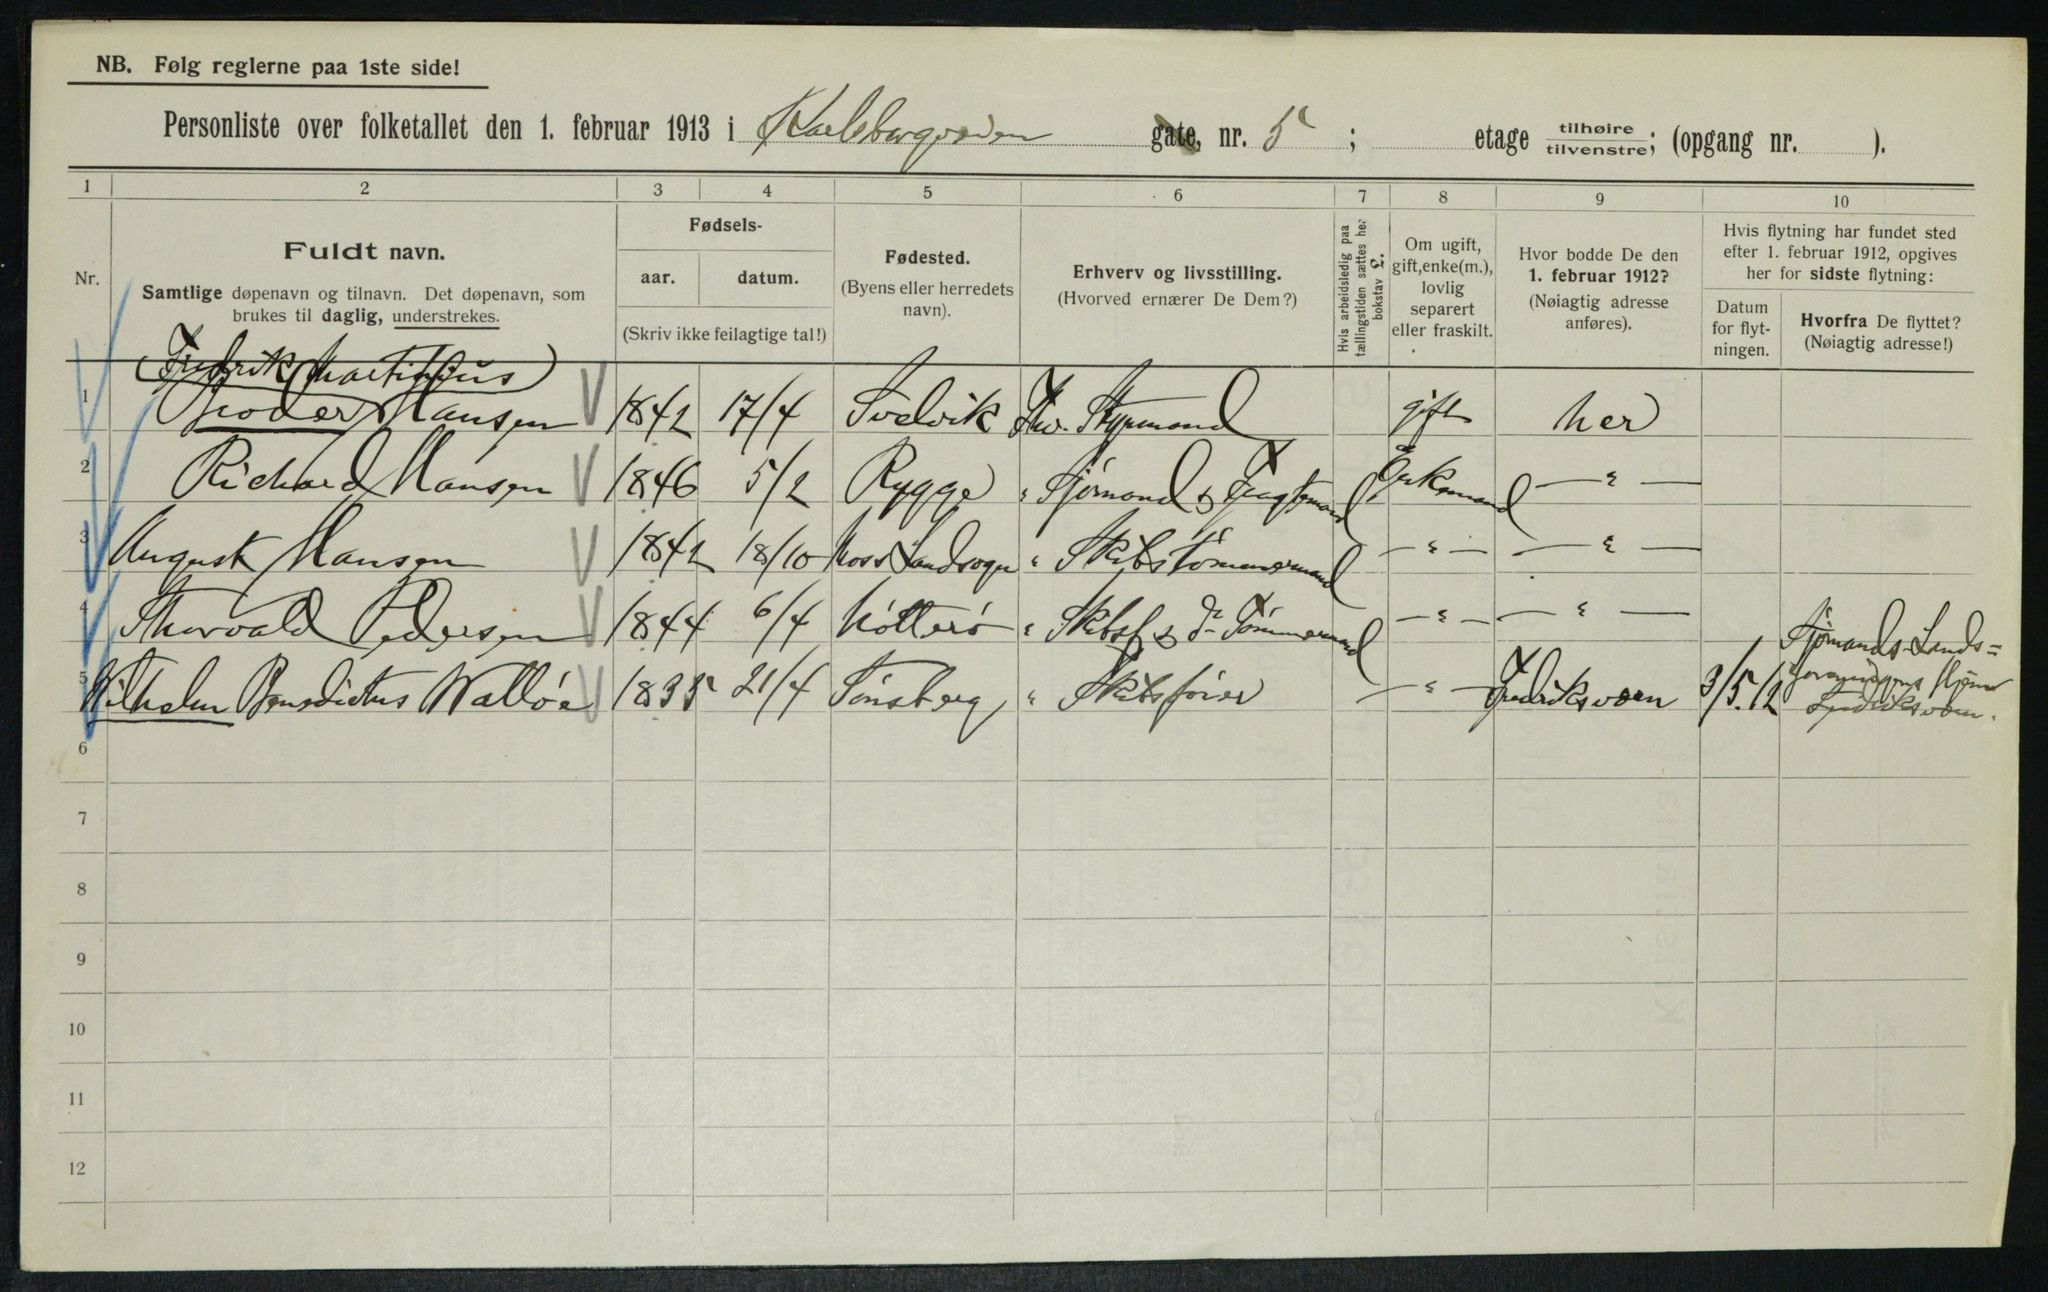 NB. Følg reglerne paa 1ste side!
Personliste over folketallet den 1. februar 1913 i Karlsborgveien gate, nr. 5 ; etage tilhøire tilvenstre; (opgang nr. ).
1 2 3 4 5 6 7 8 9 10
Nr.
Fuldt navn.
Samtlige døpenavn og tilnavn. Det døpenavn, som
brukes til daglig, understrekes.
Fødsels-
aar. datum.
(Skriv ikke feilagtige tal!)
Fødested.
(Byens eller herredets
navn).
Erhverv og livsstilling.
(Hvorved ernærer De Dem?)
Hvis arbeidsledig paa
tællingstiden sættes her
bokstav L.
Om ugift,
gift, enke(m.),
lovlig
separert
eller fraskilt.
Hvor bodde De den
1. februar 1912?
(Nøiagtig adresse
anføres).
Hvis flytning har fundet sted
efter 1. februar 1912, opgives
her for sidste flytning:
Datum
for flyt-
ningen.
Hvorfra De flyttet?
(Nøiagtig adresse!)
(Fredrik Martinius)
1 Broder Hansen 1842 17/4 Svelvik Fhv. Styrmand gift her
2 Richard Hansen 1846 5/2 Rygge " Sjømand & Fragtemand Enkemand — " —
3 August Hansen 1842 18/10 Moss Landsogn " Skibstømmermand — " — — " —
4 Thorvald Pedersen 1844 6/4 Nötterö " Skibsf & Tømmermand — " — — " —
5 Wilhelm Benedictus Walløe 1835 21/4 Tönsberg " Skibsfører — " — Fredriksværn 3/5.12 Sjømands-Lands=
foreningens Hjem
Fredriksværn.
6
7
8
9
10
11
12